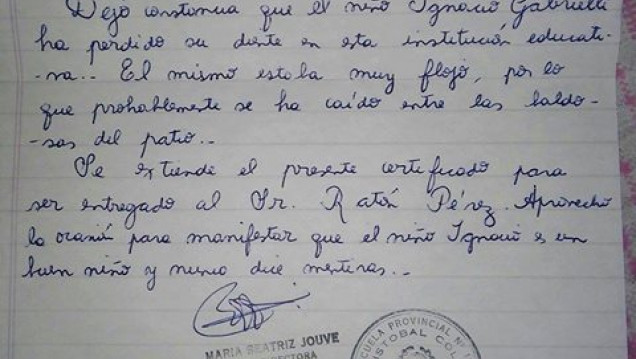 Dejo constancia que el niño Ignacio Gabrielli
ha perdido su diente en esta institución educati-
-va.. El mismo estaba muy flojo, por lo
que probablemente se ha caído entre las baldo-
-sas del patio..
Se extiende el presente certificado para
ser entregado al Sr. Ratón Pérez. Aprovecho
la ocasión para manifestar que el niño Ignacio es un
buen niño y nunca dice mentiras..
MARIA BEATRIZ JOUVE
DIRECTORA
ESCUELA PROVINCIAL N° 1
CRISTOBAL COL